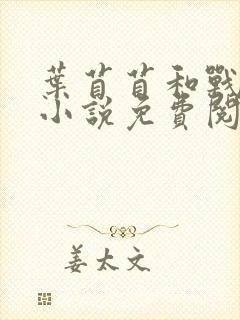 葉苜苜和戰
小說免費閱
姜太文